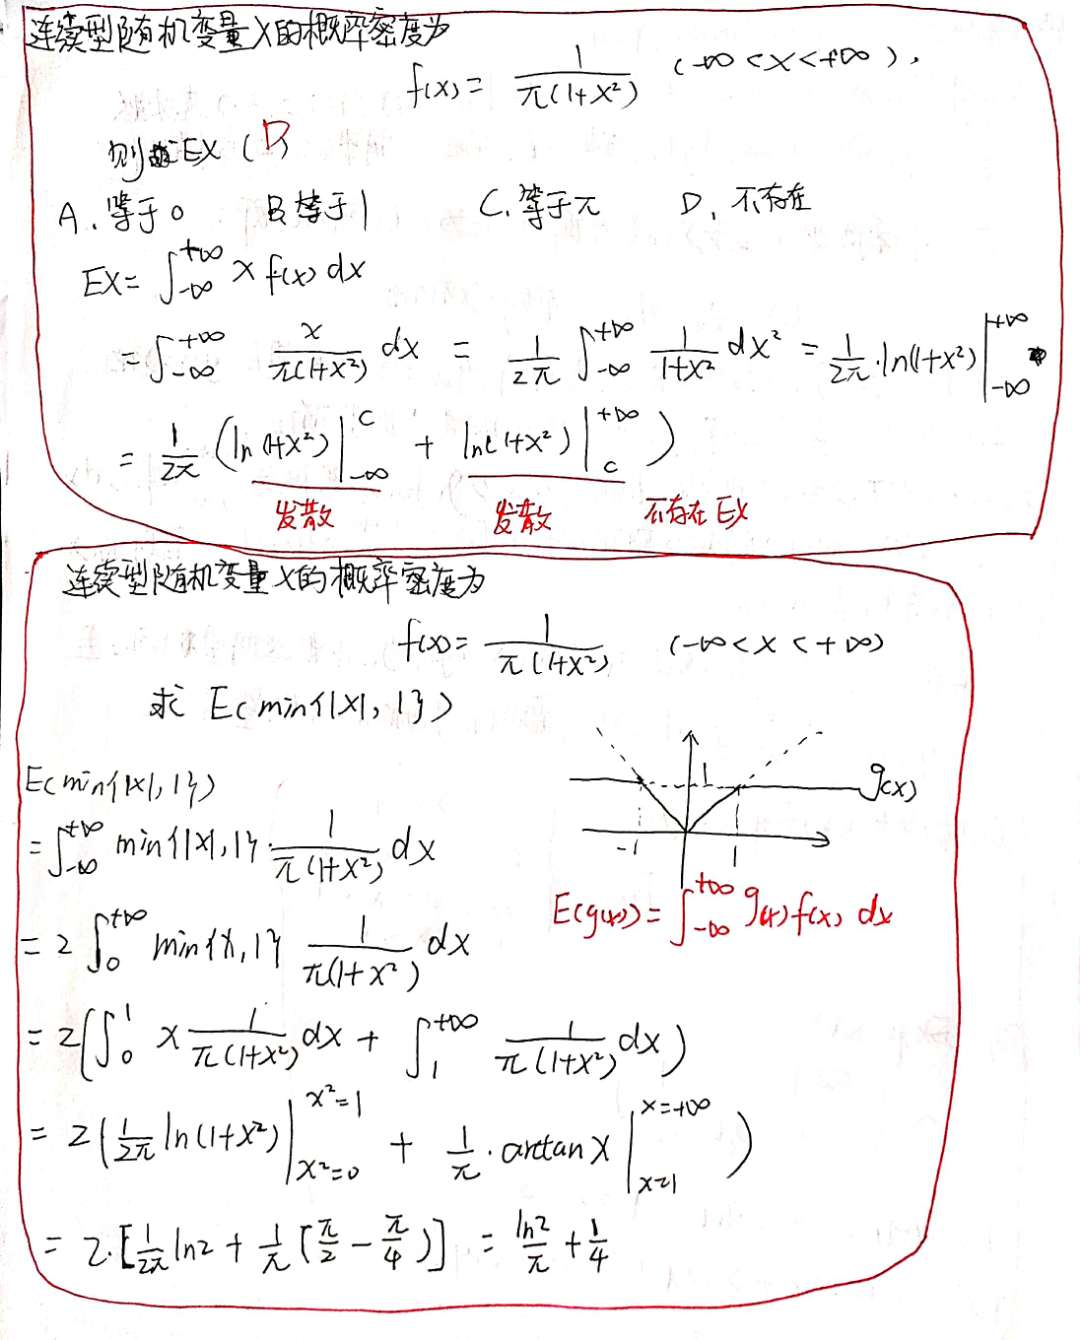 连续型随机变量X的概率密度为
f(x) = 1/(π(1+x²)) (-∞<x<+∞),
则 EX (D)
A. 等于0 B 等于1 C. 等于π D. 不存在
EX = ∫_{-∞}^{+∞} x f(x) dx
= ∫_{-∞}^{+∞} x/(π(1+x²)) dx = 1/(2π) ∫_{-∞}^{+∞} 1/(1+x²) dx² = 1/(2π)·ln(1+x²) |_{-∞}^{+∞}
= 1/(2π) (ln(1+x²) |_{-∞}^{c} + ln(1+x²) |_{c}^{+∞})
发散 发散 不存在EX
连续型随机变量X的概率密度为
f(x) = 1/(π(1+x²)) (-∞<x<+∞)
求 E(min{|X|, 1})
E(min{|X|, 1})
= ∫_{-∞}^{+∞} min{|x|, 1}·1/(π(1+x²)) dx
= 2 ∫_{0}^{+∞} min{x, 1} 1/(π(1+x²)) dx
= 2(∫_{0}^{1} x 1/(π(1+x²)) dx + ∫_{1}^{+∞} 1/(π(1+x²)) dx)
= 2(1/(2π) ln(1+x²) |_{x²=0}^{x²=1} + 1/π · arctan x |_{x=1}^{x=+∞})
= 2·[1/(2π) ln2 + 1/π [π/2 - π/4)] = ln2/π + 1/4
1
g(x)
-1 1
E(g(x)) = ∫_{-∞}^{+∞} g(x) f(x) dx